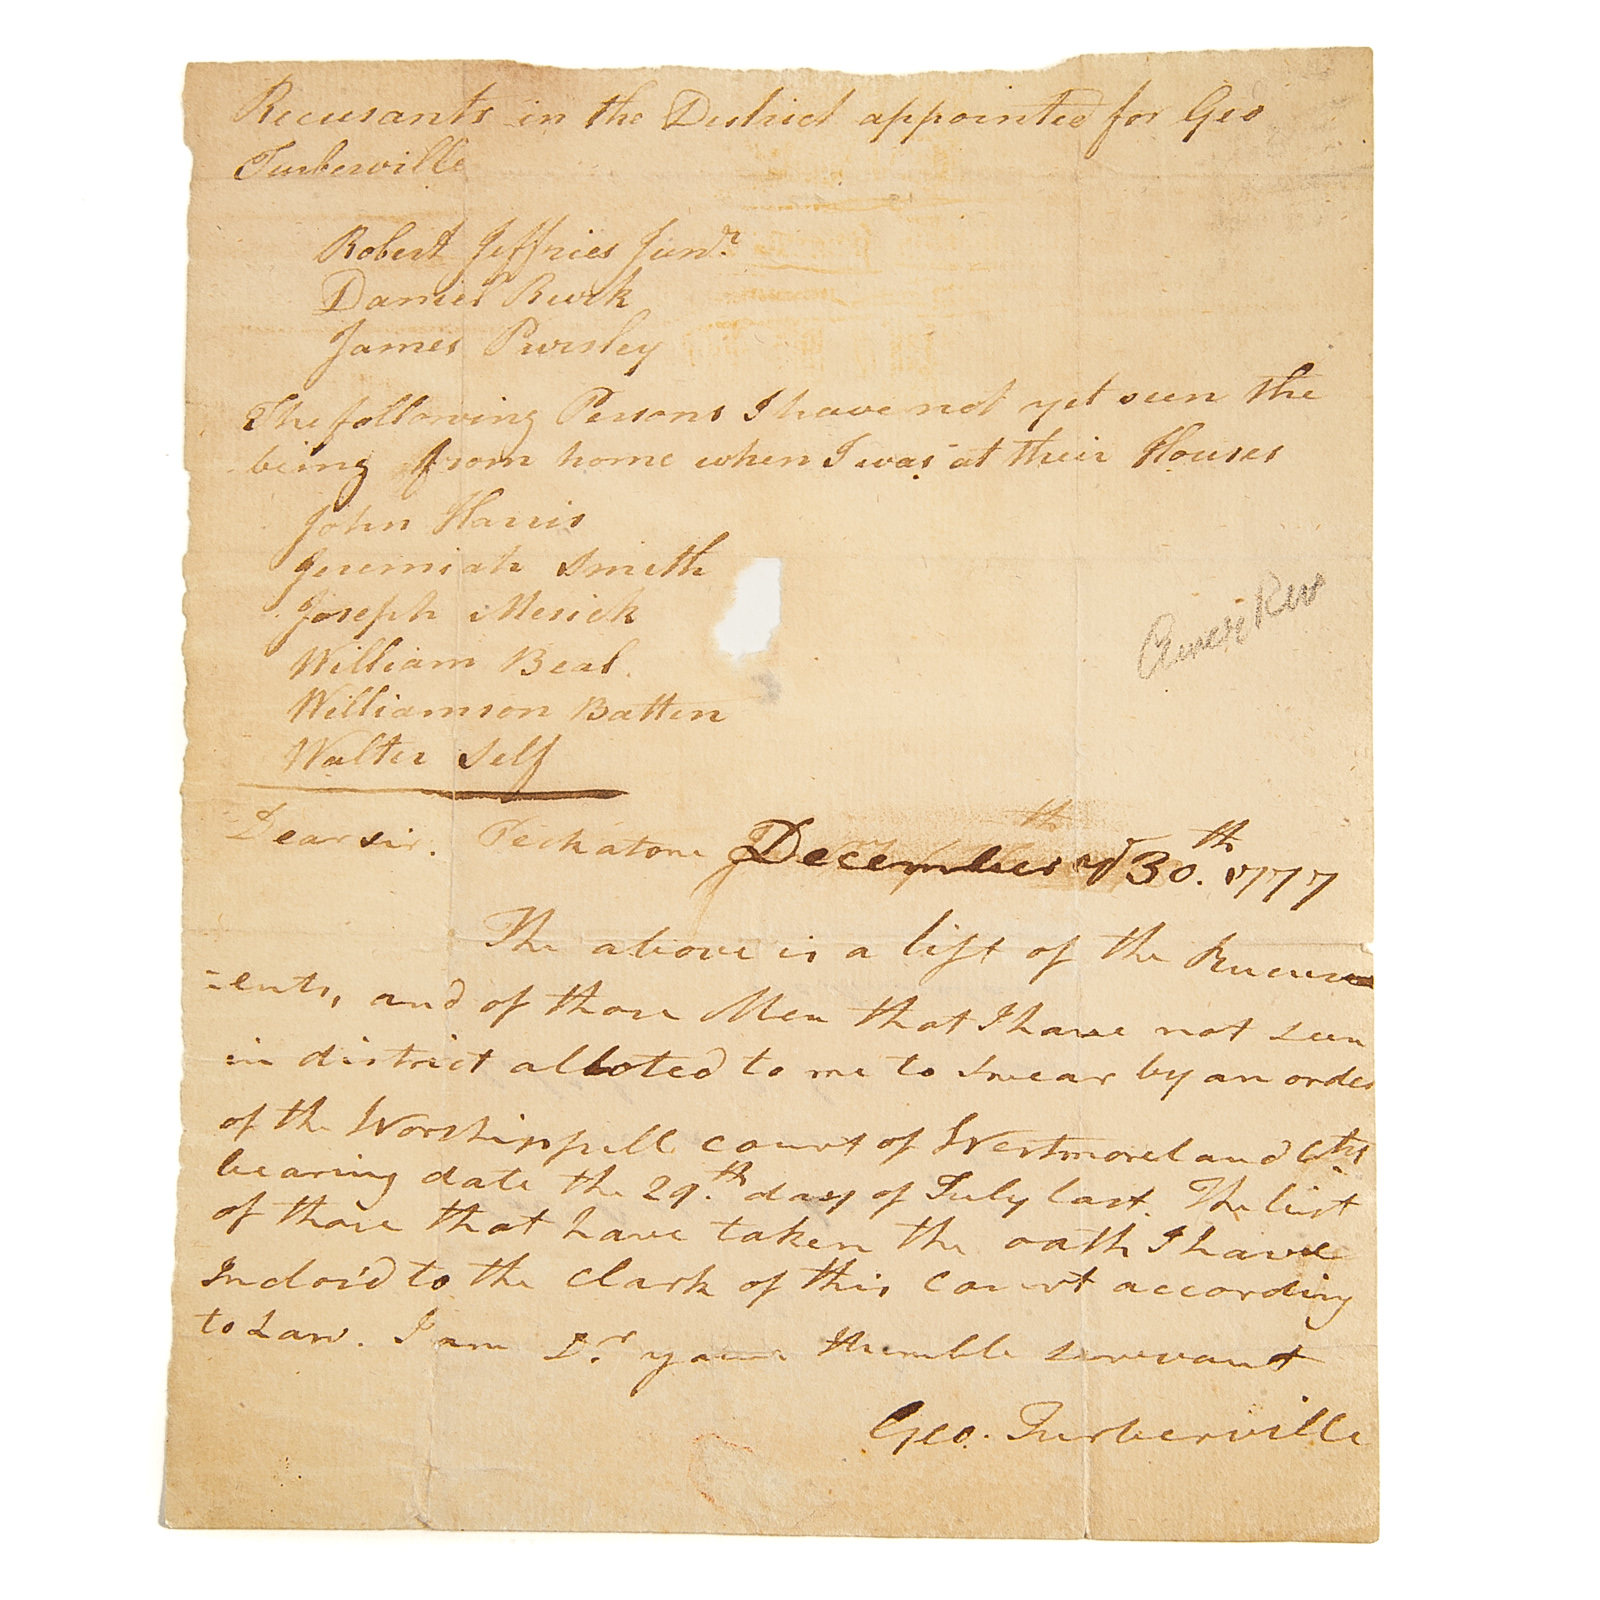 Recusants in the District appointed for Geo
Turberville
Robert Jeffries Junr.
Daniel
James Pursley
The following Persons I have not yet seen the
being from home when I was at their Houses
John Harris
Jeremiah Smith
Joseph Mesick
William Beal.
Williamson Batten
Walter Self
Dear sir. Peckatone December 30.th 1777
The above is a list of the Recus
=ents, and of those Men that I have not seen
in district alloted to me to swear by an order
of the Worshippfull court of Westmoreland Cty
bearing date the 29.th day of July last. The list
of those that have taken the oath I have
Inclos'd to the Clark of this Court according
to Law. I am Sr. your Humble servant
Geo. Turberville
Amer Rev